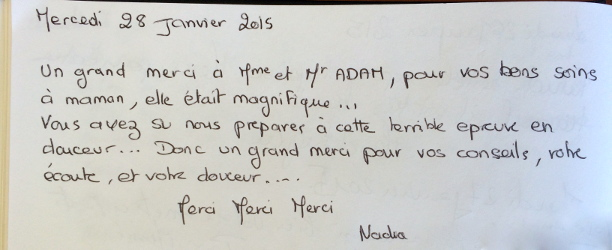 Mercredi 28 Janvier 2015
Un grand merci à Mme et Mr ADAM, pour vos bons soins
à maman, elle était magnifique...
Vous avez su nous préparer à cette terrible epreuve en
douceur... Donc un grand merci pour vos conseils, votre
écoute, et votre douceur....
Merci Merci Merci
Nadia